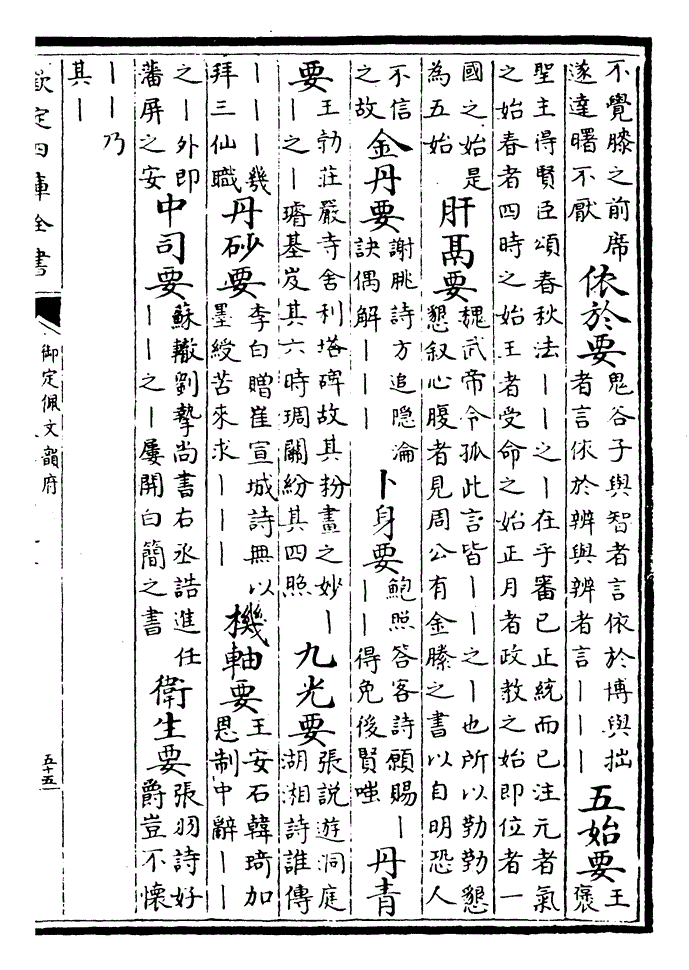 不覺膝之前席
遂達曙不厭
依於要
鬼谷子與智者言依於博與拙
者言依於辨與辨者言｜｜｜
五始要
王
褒
聖主得賢臣頌春秋法｜｜之｜在乎審已正統而已注元者氣
之始春者四時之始王者受命之始正月者政教之始即位者一
國之始是
為五始
肝鬲要
魏武帝令孤此言皆｜｜之｜也所以勤勤懇
懇叙心腹者見周公有金縢之書以自明恐人
不信
之故
金丹要
謝朓詩方追隐淪
訣偶解｜｜｜
卜身要
鮑照答客詩願賜｜
｜｜得免後賢嗤
丹青
要
王勃莊嚴寺舍利塔碑故其粉畫之妙｜
｜之｜璿基岌其六時琱闕紛其四照
九光要
張說遊洞庭
湖湘詩誰傳
｜｜｜幾
拜三仙職
丹砂要
李白贈崔宣城詩無以
墨綬苦來求｜｜｜
機軸要
王安石韓琦加
恩制中辭｜｜
之｜外即
藩屏之安
中司要
蘇轍劉摯尚書右丞誥進任
｜｜之｜屢開白簡之書
衛生要
張羽詩好
爵豈不懷
｜｜乃
其｜
欽定四庫全書
御定佩文韻府
五十五